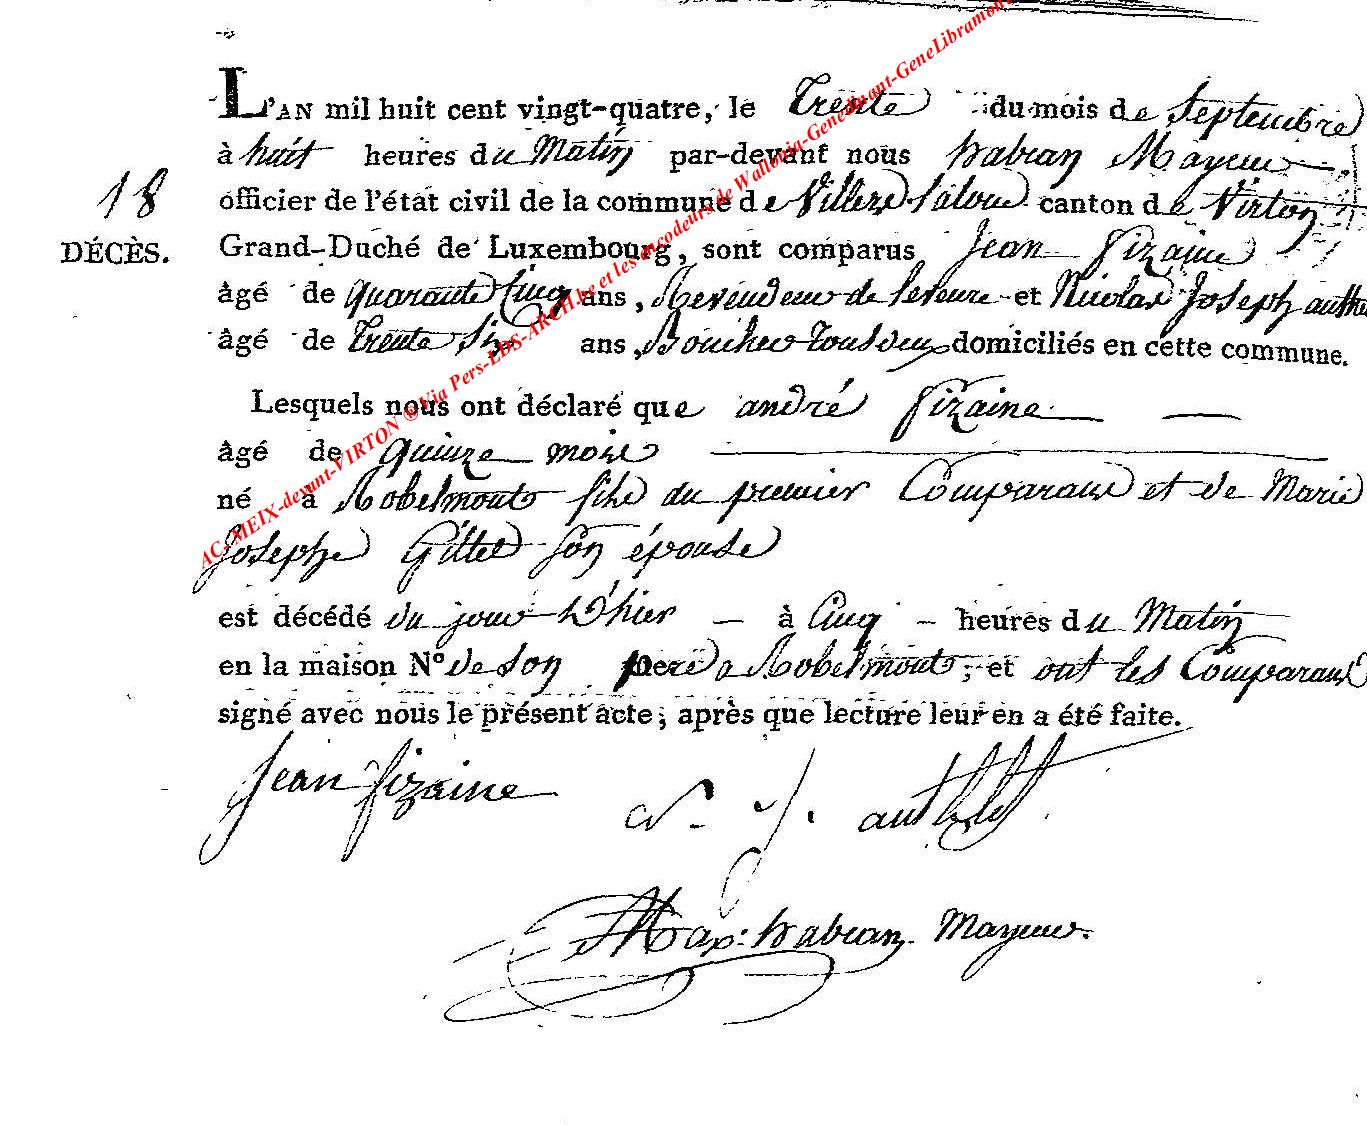 L'AN mil huit cent vingt-quatre, le Trente du mois de Septembre
à huit heures du Matin par-devant nous habran Mayeur
18
officier de l'état civil de la commune de Villers la loue canton de Virton
DÉCÈS.
Grand-Duché de Luxembourg, sont comparus Jean fizaine
âgé de quarante Cinq ans, Revendeur de et Nicolas Joseph auth
âgé de Trente Six ans, Boucher tous deux domiciliés en cette commune.
Lesquels nous ont déclaré que andré fizaine
âgé de quinze mois
né à Robelmont fils du premier Comparant et de Marie
Josephe Gillet son épouse
est décédé du jour D'hier à Cinq heures du Matin
en la maison N° de son pere a Robelmont; et ont les Comparant
signé avec nous le présent acte, après que lecture leur en a été faite.
Jean fizaine
N. J. authelet
Max: habran Mayeur.
AC-MEIX-devant-VIRTON ® Via Pers-LDS-ARCH.be et les encodeurs de Wallonia-Genedinant-GeneLibramont